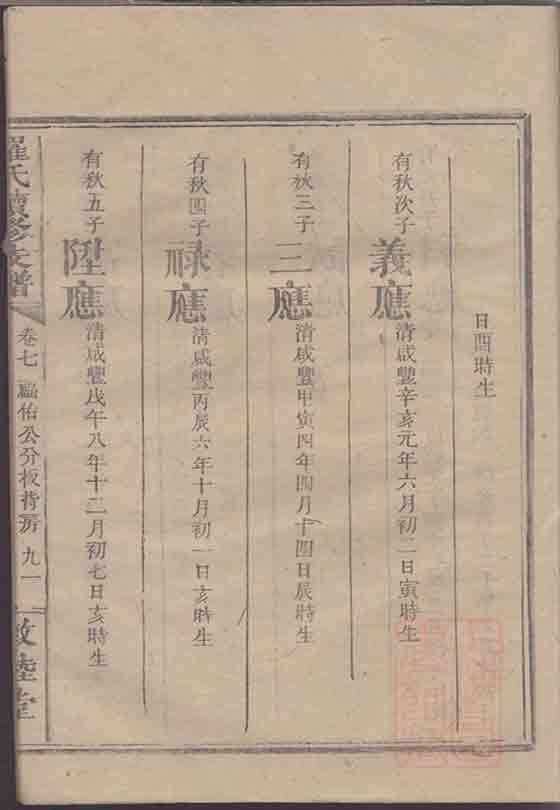 日酉時生
有秋次子
義應
清咸豐辛亥元年六月初二日寅時生
有秋三子
三應
清咸豐甲寅四年四月十四日辰時生
有秋四子
祿應
清咸豐丙辰六年十月初一日亥時生
有秋五子
陞應
清咸豐戊午八年十二月初七日亥時生
羅氏續修支譜
卷七
公分板背房
九一
敦睦堂